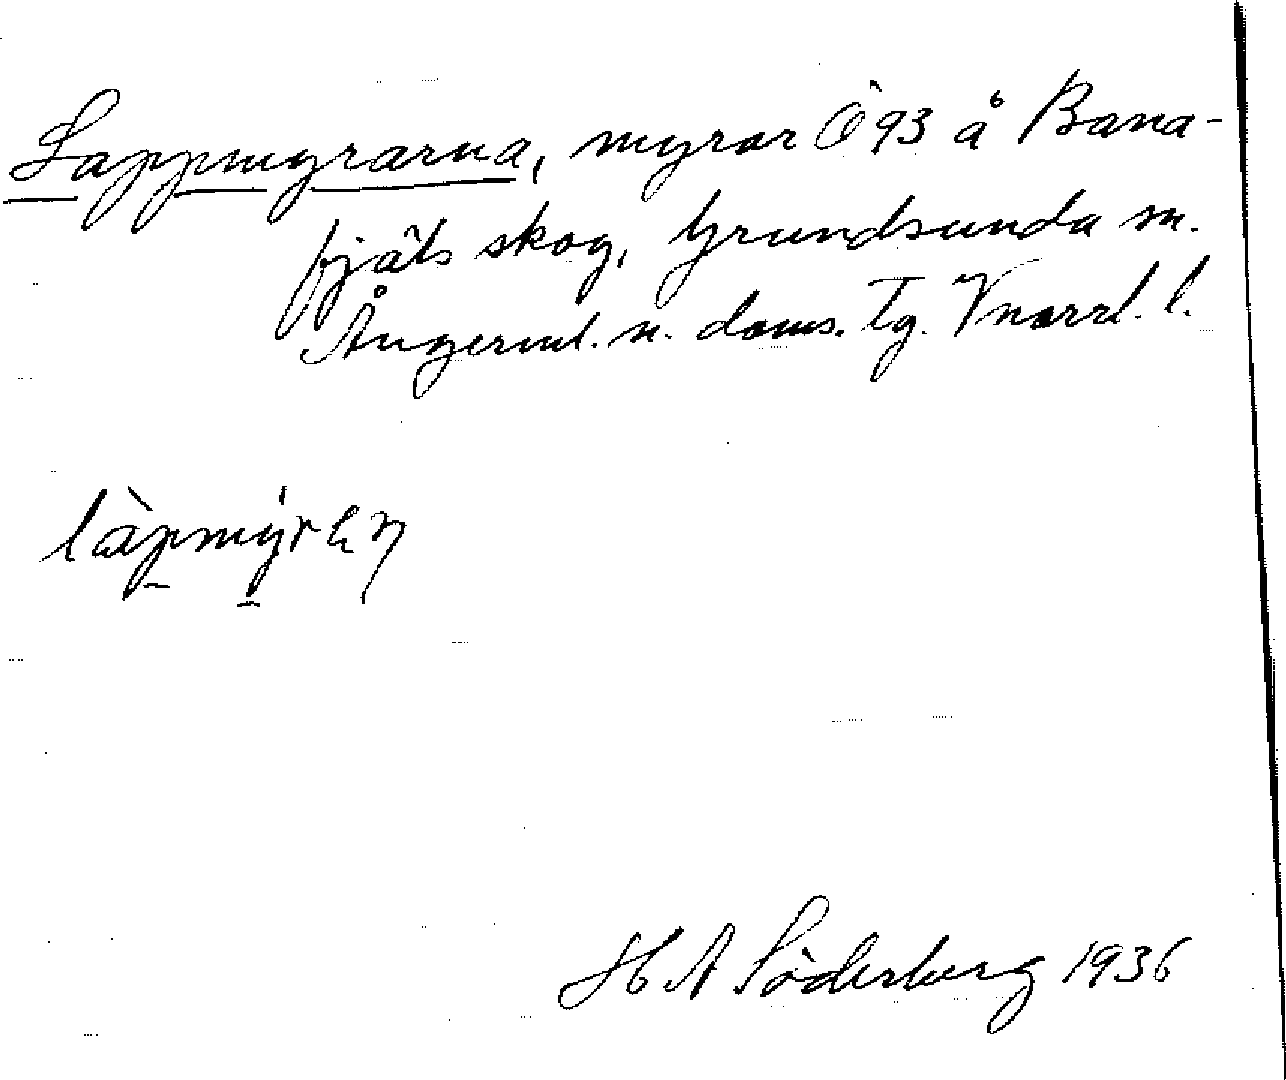 Lappmyrarna, myrar Ö 93 å Bana-
fjäls skog, Grundsunda sn.
Ångerml. n. doms. Tg. Vnorrl. l.
làpmýren
H A Söderberg 1936